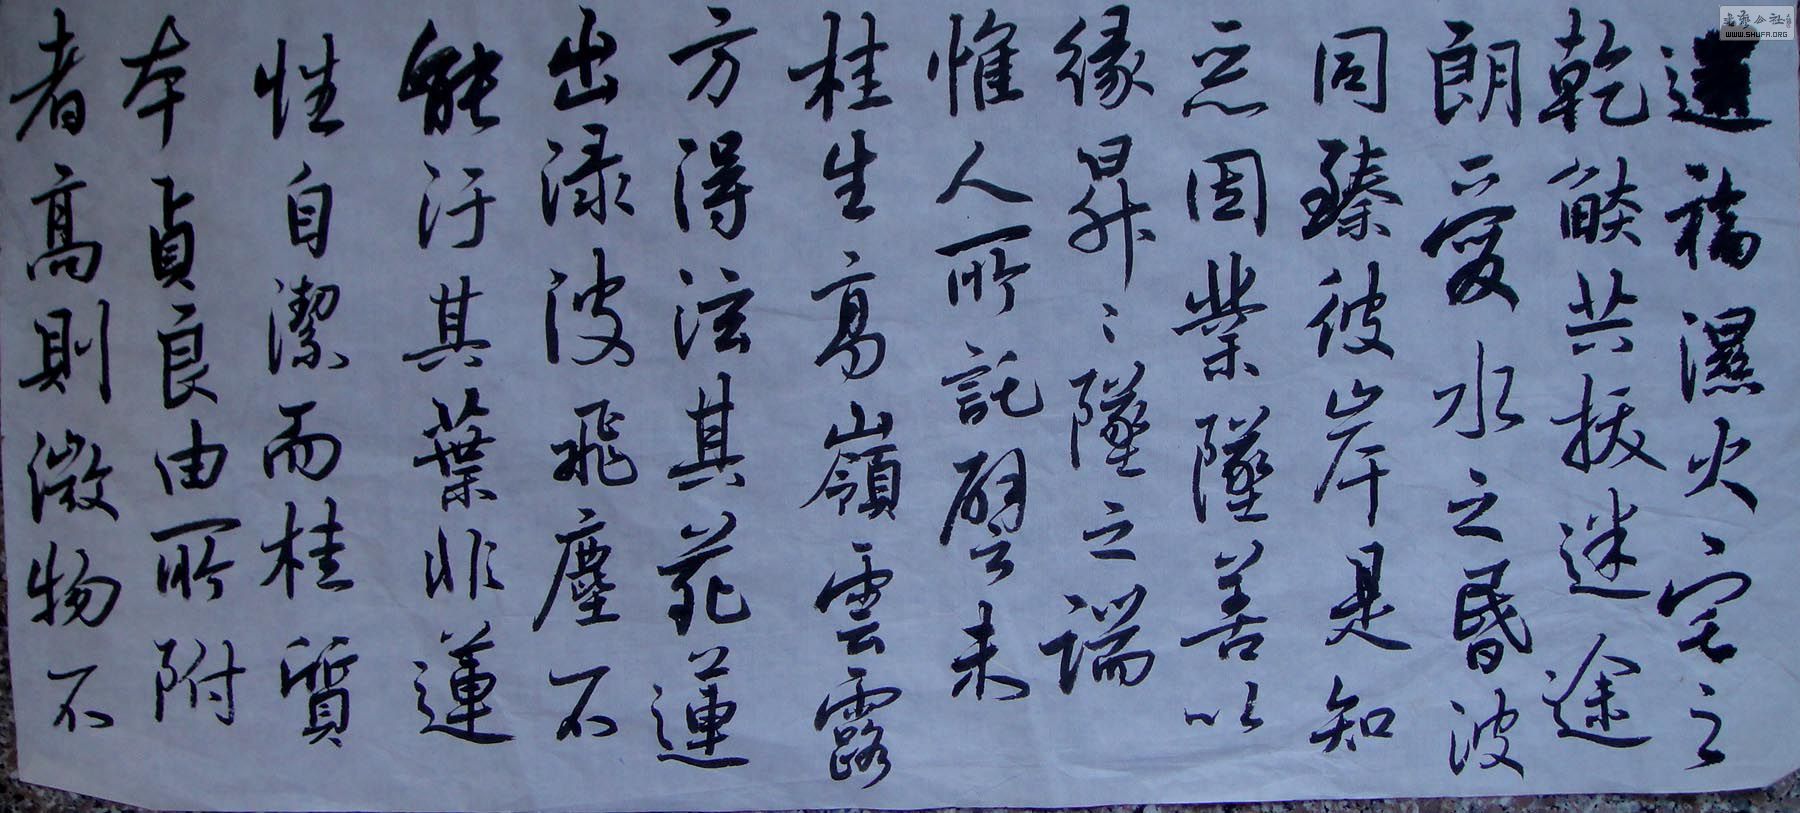 遺福濕火宅之
乾燄共拔迷途
朗愛水之昏波
同臻彼岸是知
惡因業墜善以
緣昇〻墜之端
惟人所託譬未
桂生高嶺雲露
方得泫其花蓮
出淥波飛塵不
能汙其葉非蓮
性自潔而桂質
本貞良由所附
者高則微物不
書藝公社
WWW.SHUFA.ORG